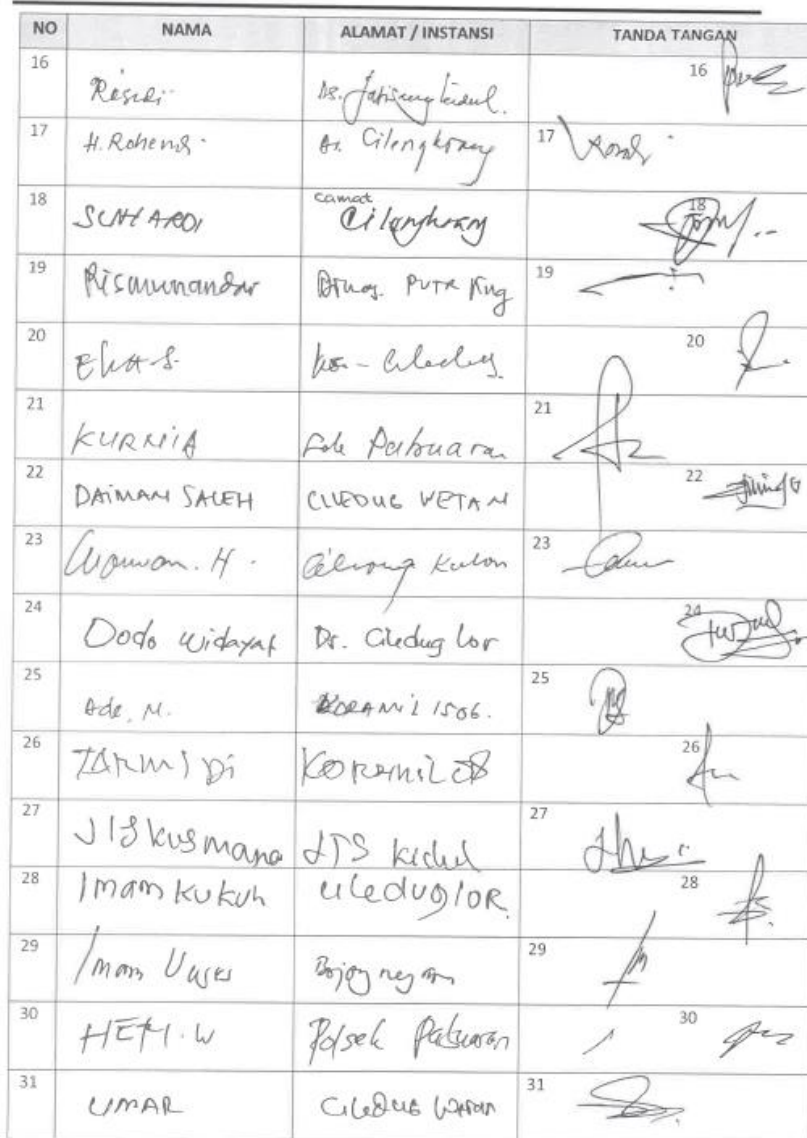 NO NAMA ALAMAT / INSTANSI TANDA TANGAN
16 Ds. Jatiseeng Kidul. 16
17 H. Rohendi Ds. Cilengkrang 17
18 SUHARDI Camat Cilengkrang 18
19 Rismunandar Dinas PUTR Kng 19
20 EKA S. 20
21 KURNIA Pabuaran 21
22 DAIMAN SALEH CILEDUG WETAN 22
23 H. Kulon 23
24 Dodo Widayat Ds. Ciledug Lor 24
25 Ade. M. KORAMIL 1506. 25
26 TARMIDI KORAMIL 26
27 Kusmana JTS Kidul 27
28 Imam Kukuh Ciledug lOR. 28
29 Imam Bojongnegara 29
30 HERI. W Polsek Pabuaran 30
31 UMAR CILEDUG Wetan 31